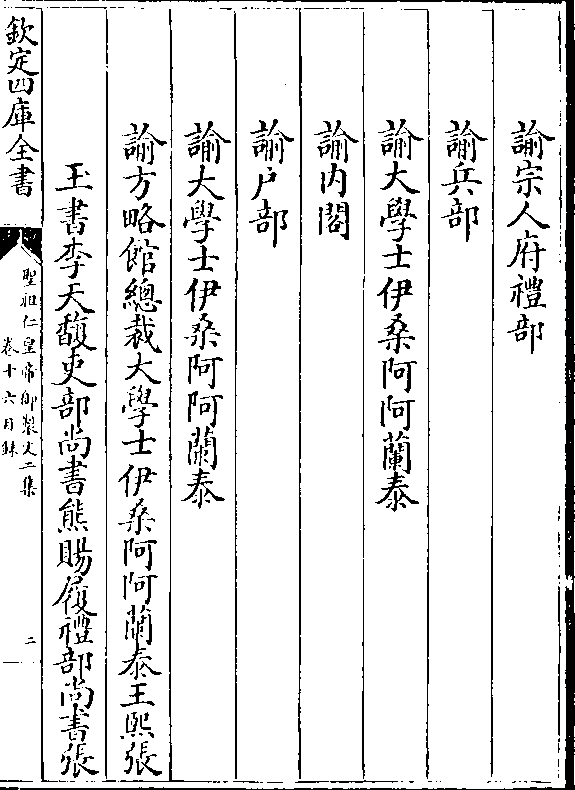 諭宗人府禮部
諭兵部
諭大學士伊桑阿阿蘭泰
諭内閣
諭户部
諭大學士伊桑阿阿蘭泰
諭方略館總裁大學士伊桑阿阿蘭泰王熙張
玉書李天馥吏部尚書熊賜履禮部尚書張
欽定四庫全書
聖祖仁皇帝御製文二集
卷十六目録
二